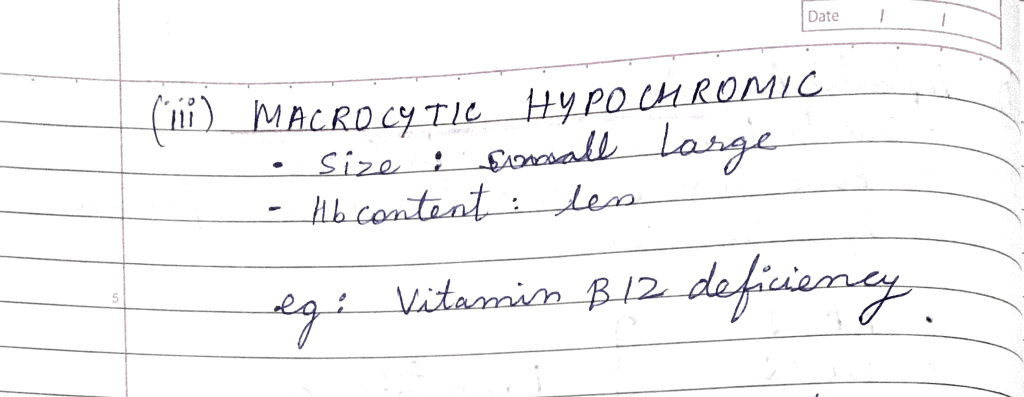 Date / /
(iii) MACROCYTIC HYPOCHROMIC
• Size : small Large
- Hb content : less
5
eg : Vitamin B12 deficiency.